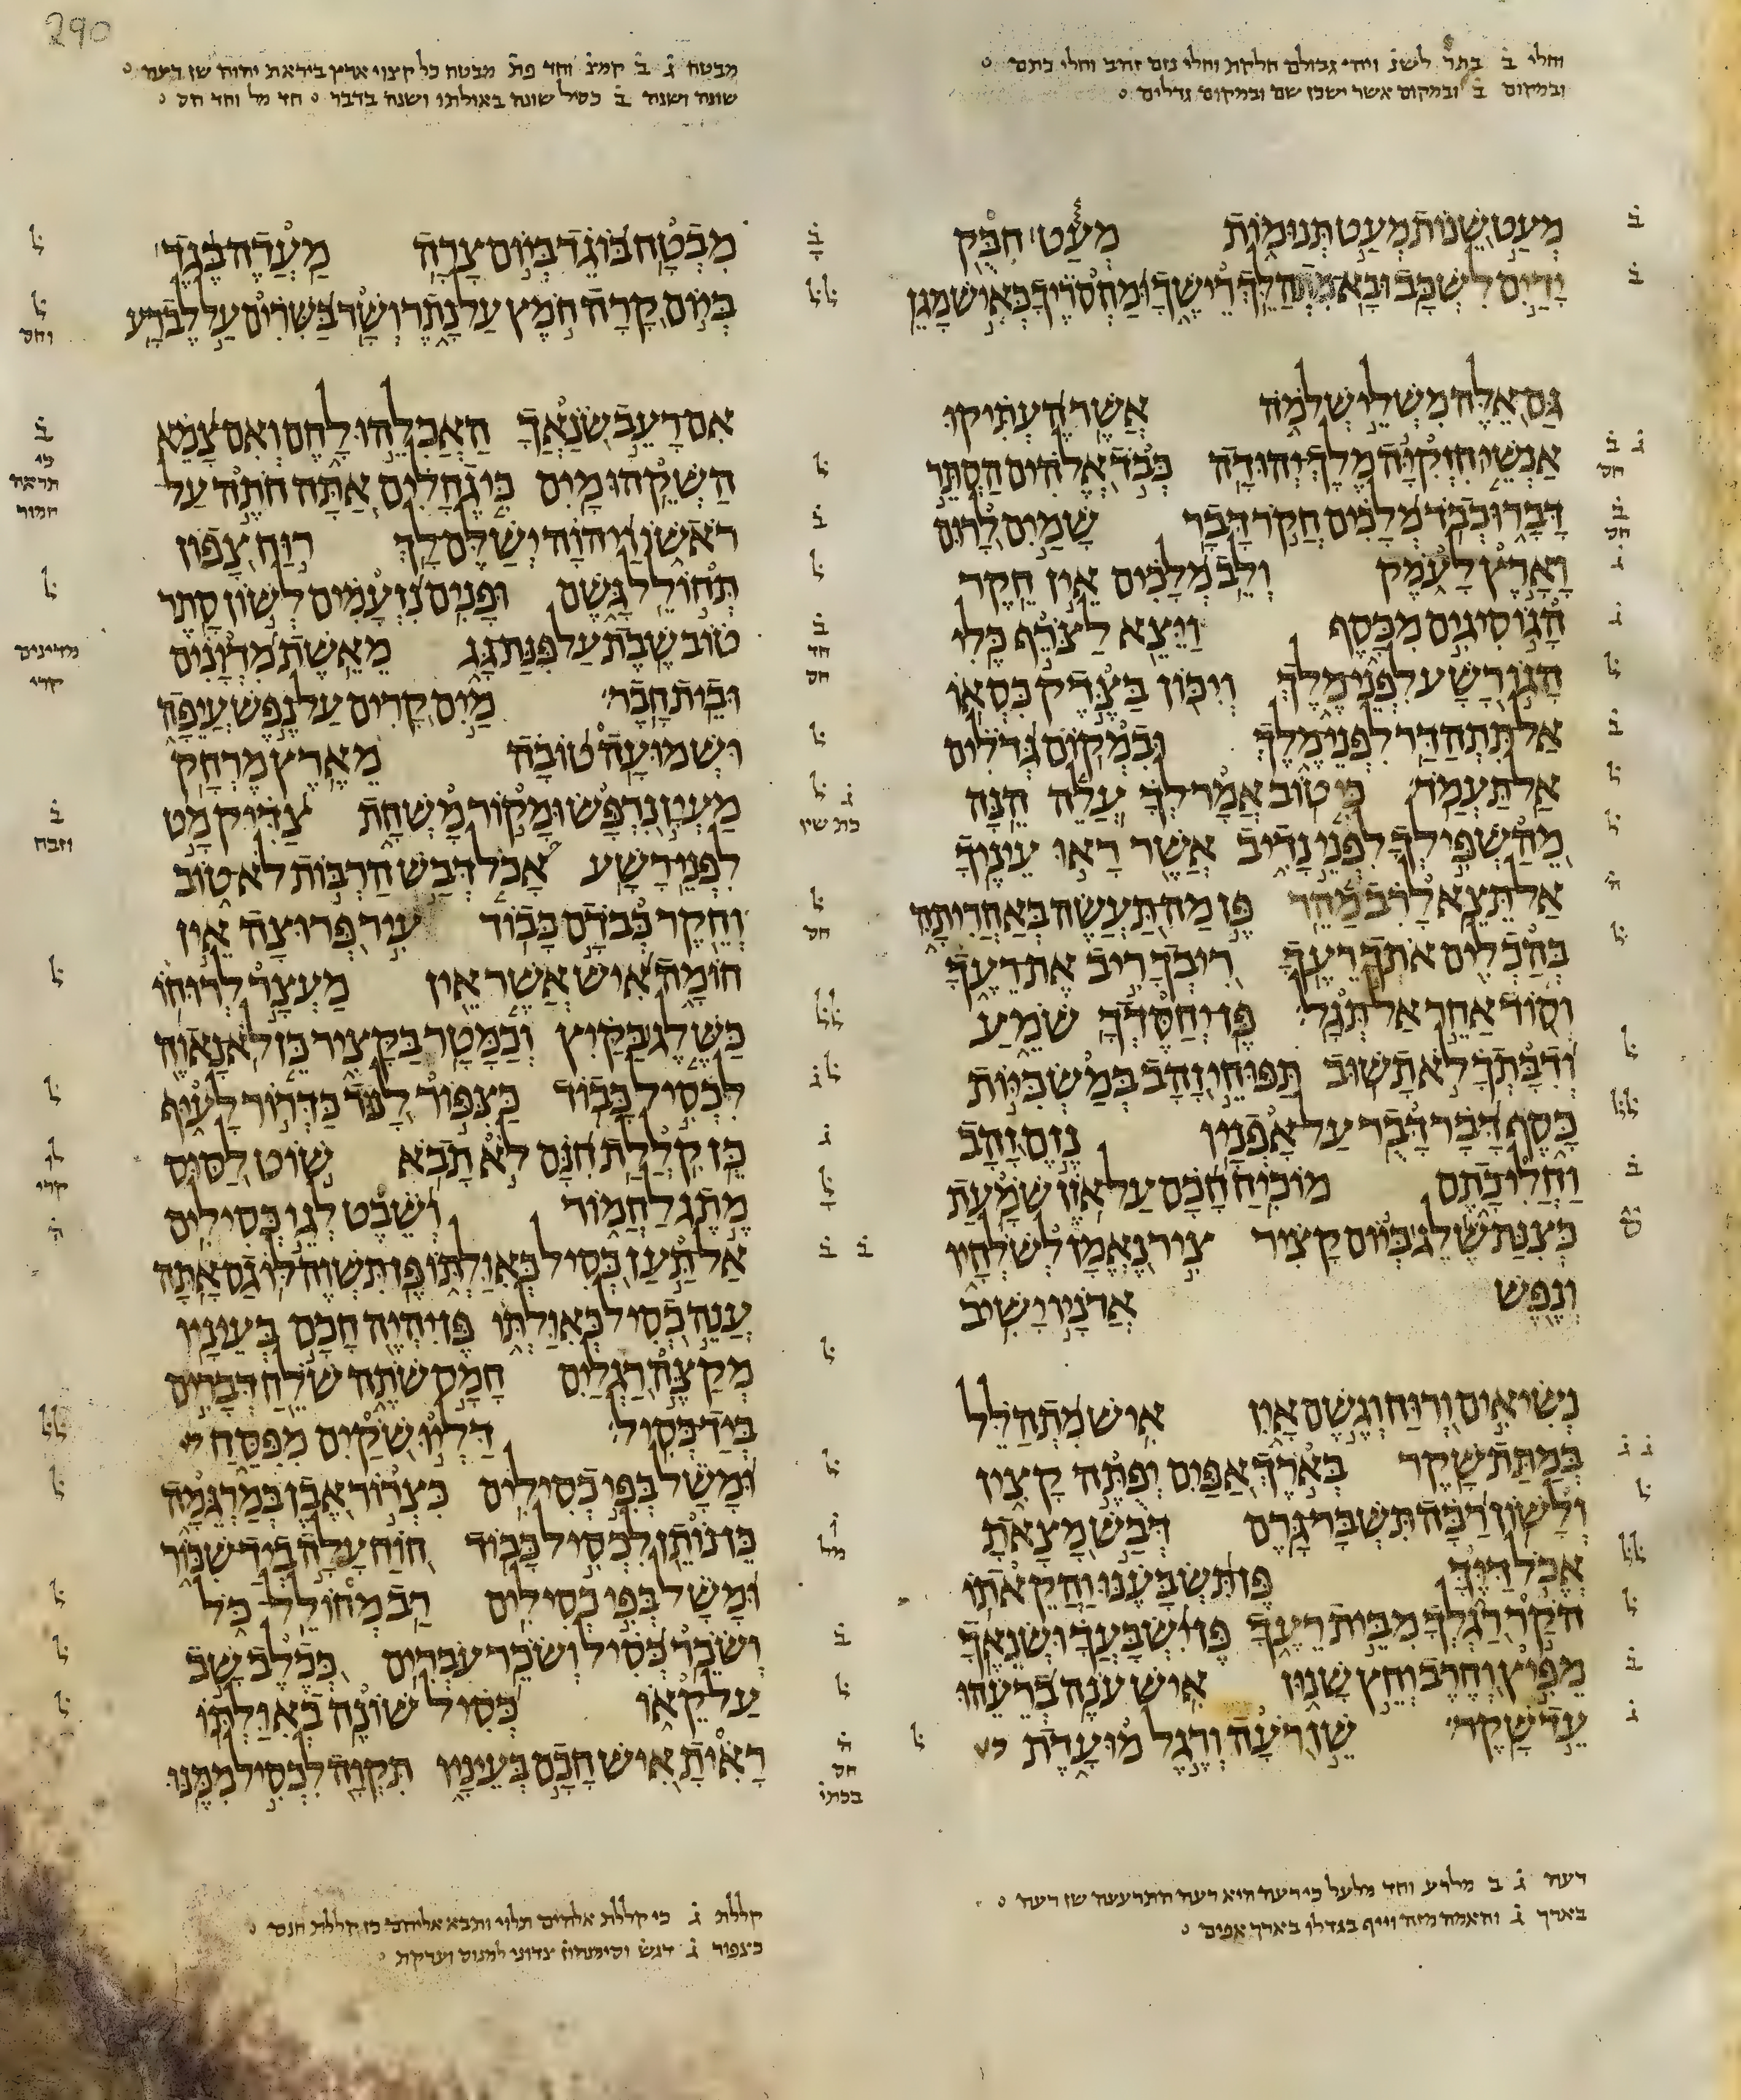 290
וחלי ב בתר לשנ ויהי גבולם חלקת וחלי נזם זהב וחלי כתם
ובמקום ב ובמקום אשר ישכן שם ובמקום גדלים
מעט שנות מעט תנומות מעט חבק
ידים לשכב ובא מתהלך רישך ומחסריך כאיש מגן
גם אלה משלי שלמה אשר העתיקו
אנשי חזקיה מלך יהודה כבד אלהים הסתר
דבר וכבד מלכים חקר דבר שמים לרום
וארץ לעמק ולב מלכים אין חקר
הגו סיגים מכסף ויצא לצרף כלי
הגו רשע לפני מלך ויכון בצדק כסאו
אל תתהדר לפני מלך ובמקום גדלים
אל תעמד כי טוב אמר לך עלה הנה
מהשפילך לפני נדיב אשר ראו עיניך
אל תצא לרב מהר פן מה תעשה באחריתה
בהכלים אתך רעך ריבך ריב את רעך
וסוד אחר אל תגל פן יחסדך שמע
ודבתך לא תשוב תפוחי זהב במשכיות
כסף דבר דבר על אפניו נזם זהב
וחלי כתם מוכיח חכם על אזן שמעת
כצנת שלג ביום קציר ציר נאמן לשלחיו
ונפש אדניו ישיב
נשיאים ורוח וגשם אין איש מתהלל
במתת שקר בארך אפים יפתה קצין
ולשון רכה תשבר גרם דבש מצאת
אכל דיך פן תשבענו והקאתו
הקר רגלך מבית רעך פן ישבעך ושנאך
מפיץ וחרב וחץ שנון איש ענה ברעהו
עד שקר שן רעה ורגל מועדת
רעה ג ב מלרע וחד מלעל כי רעה היא רעה התרעעה שן רעה
בארך ג והאמה מזה וייף בגדלו בארך אפים
מבטח ג ב קמצ וחד פת מבטח כל קצוי ארץ ביראת יהוה שן רעה
שונה ושנה ב כסיל שונה באולתו ושנה בדבר חד מל וחד חס
מבטח בוגד ביום צרה מעדה בגד
ביום קרה חמץ על נתר ושר בשרים על לב רע
אם רעב שנאך האכלהו לחם ואם צמא
השקהו מים כי גחלים אתה חתה על
ראשו ויהוה ישלם לך רוח צפון
תחולל גשם ופנים נזעמים לשון סתר
טוב שבת על פנת גג מאשת מדונים
ובית חבר מים קרים על נפש עיפה
ושמועה טובה מארץ מרחק
מעין נרפש ומקור משחת צדיק מט
לפני רשע אכל דבש הרבות לא טוב
וחקר כבדם כבוד עיר פרוצה אין
חומה איש אשר אין מעצר לרוחו
כשלג בקיץ וכמטר בקציר כן לא נאוה
לכסיל כבוד כצפור לנוד כדרור לעוף
כן קללת חנם לא תבא שוט לסוס
מתג לחמור ושבט לגו כסילים
אל תען כסיל כאולתו פן תשוה לו גם אתה
ענה כסיל כאולתו פן יהיה חכם בעיניו
מקצה רגלים חמס שתה שלח דברים
ביד כסיל דליו שקים מפסח
ומשל בפי כסילים כצרור אבן במרגמה
כן נותן לכסיל כבוד חוח עלה ביד שכור
ומשל בפי כסילים רב מחולל כל
ושכר כסיל ושכר עברים ככלב שב
על קאו כסיל שונה באולתו
ראית איש חכם בעיניו תקוה לכסיל ממנו
קללת ג כי קללת אלהים תלוי ותבא אליהם כן קללת חנם
כצפור ג דגש וסימנהון צדוני למנוס וערקת